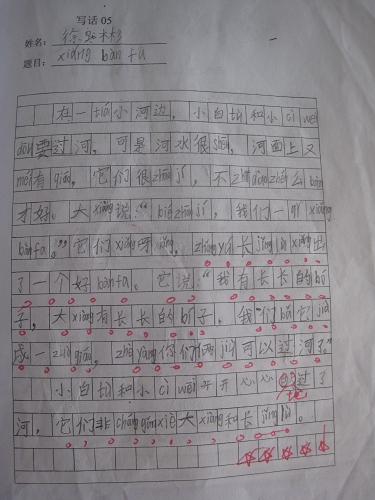 写话 05
姓名：徐
题目：xiǎng bàn fǎ
在一tiáo小河边，小白tù和小cì wei
dōu要过河，可是河水很shēn，河面上又
méi有qiáo，它们很zháo jí，不zhī dào zěn么bàn
才好。大xiàng说：“bié zháo jí，我们一qǐ xiǎng
bàn fǎ。”它们xiǎng呀xiǎng，zhōng yú长jǐng lù xiǎng出
了一个好bàn fǎ。它说：“我有长长的bó
子，大xiàng有长长的bí子，我们bǎ它jià
成一zuò qiáo，zhè yàng你们liǎ jiù可以过河了。”
小白tù和小cì wei开开心心地过了
河，它们非cháng gǎn xiè大xiàng和长jǐng lù。